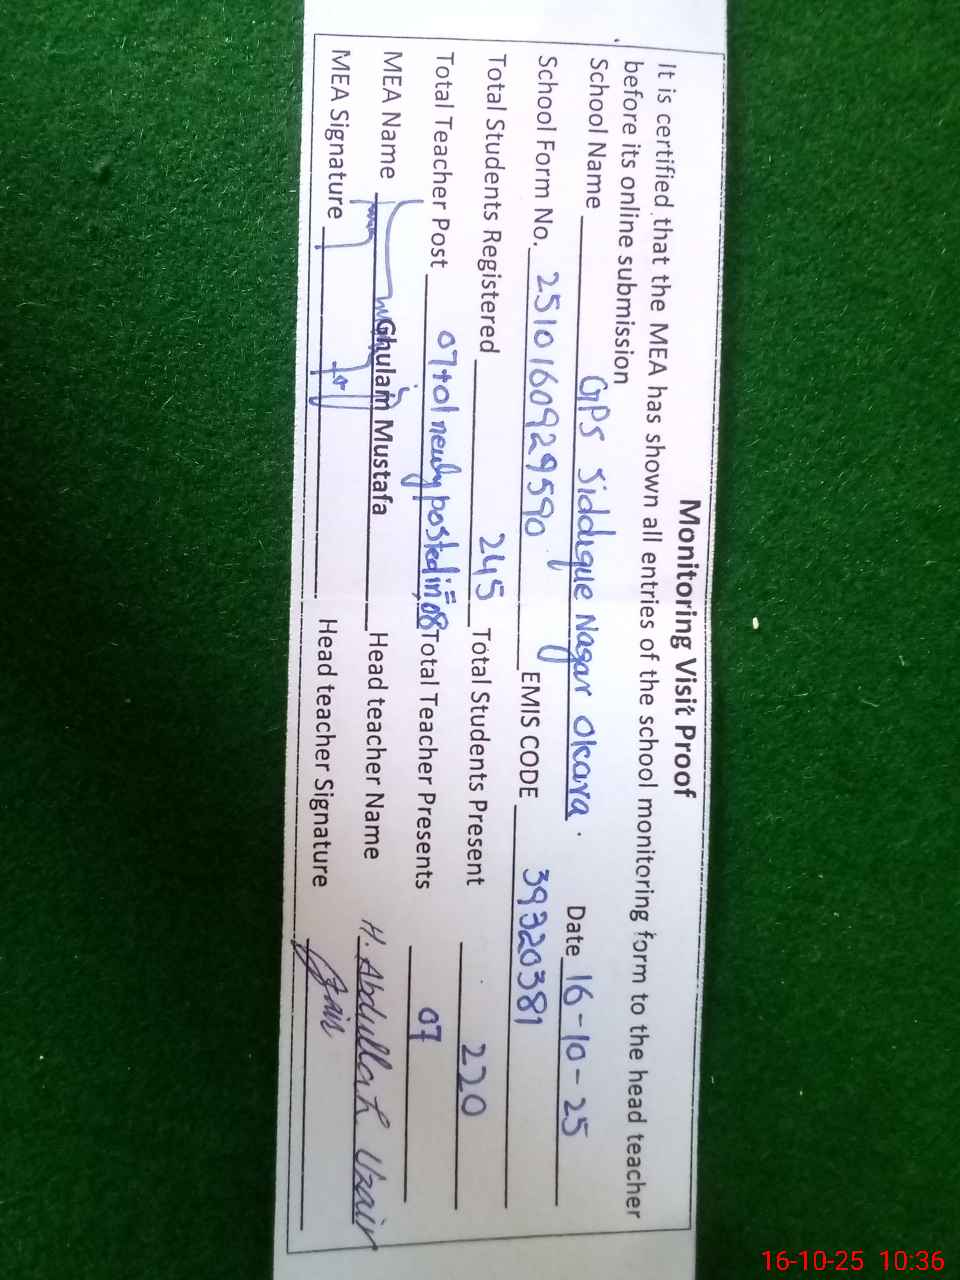 Monitoring Visit Proof
It is certified that the MEA has shown all entries of the school monitoring form to the head teacher
before its online submission
School Name GPS Siddique Nagar Okara. Date 16-10-25
School Form No. 2510160929590 EMIS CODE 39320381
Total Students Registered 245 Total Students Present 220
Total Teacher Post 07+01 newly posted in = 08 Total Teacher Presents 07
MEA Name Ghulam Mustafa Head teacher Name H. Abdullah Uzair
MEA Signature Head teacher Signature
16-10-25 10:36